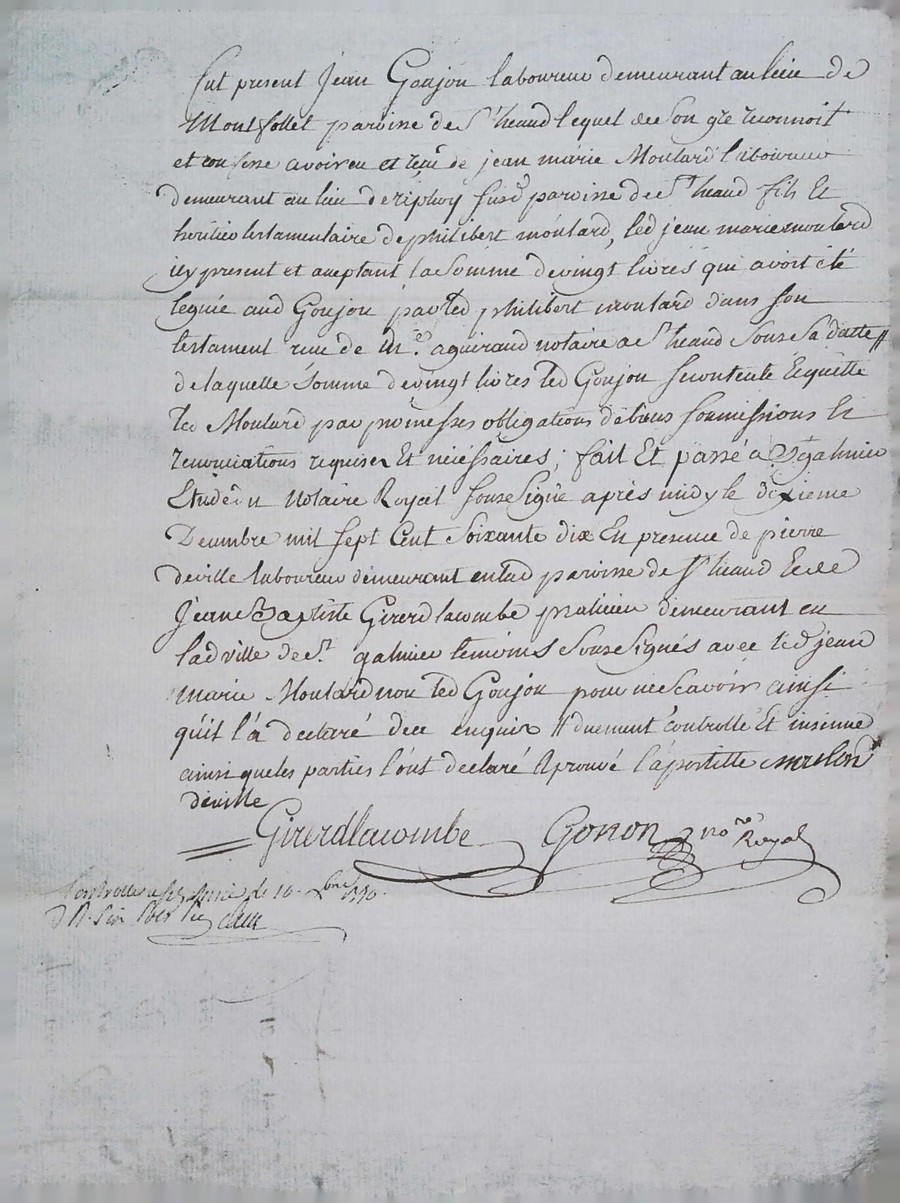 fut present Jean Goujon laboureur demeurant au lieu de
Montfollet paroisse de St heand lequel de son gré reconnoit
et confesse avoir eu et reçu de jean marie Moulard laboureur
demeurant au lieu de paroisse de St heand fils Et
héritier testamentaire de philibert moulard, led jean marie moulard
icy present et acceptant la somme de vingt livres qui avoit été
leguée aud Goujon par led philibert moulard dans son
testament reçu de Me. aguiraud notaire a St heand sous sa datte //
de laquelle somme de vingt livres led Goujon se contente Et quitte
led Moulard par promesses obligations debiens soumissions Et
renonciations requises Et nécéssaires; fait Et passé a St galmier
Etude du Notaire Royal sousigné après midy le dixieme
Decembre mil sept Cent soixante dix En presence de pierre
deville laboureur demeurant en lad paroisse de St heand Et de
Jean Baptiste Girerd lacombe praticien demeurant en
lad ville de St. galmier temoins sousignés avec led jean
marie Moulard non led Goujon pour ne scavoir ainsi
qu'il l'a déclaré de ce enquis // duement controllé Et insinué
ainsi que les parties l'ont declaré Aprouvé l'apostille moulard
deville
Girerdlacombe Gonon nore Royal
Controllé a St galmier le 10. xbre 1770.